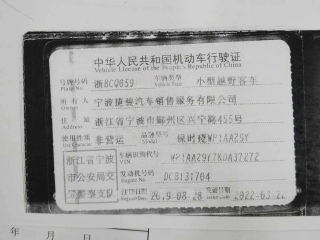 中华人民共和国机动车行驶证
Vehicle License of the People's Republic of China
号牌号码 浙BCQ859 车辆类型 小型越野客车
Plate No. Vehicle Type
所有人 宁波捷骏汽车销售服务有限公司
Owner
住址 浙江省宁波市鄞州区兴宁路455号
Address
使用性质 非营运 品牌型号 保时捷WP1AA29Y
Use Character Model
浙江省宁波 车辆识别代号 WP1AA29Y7KDA37272
VIN
市公安局交 发动机号码 DCB131704
Engine No.
注册日期 2019-08-28 发证日期
Register Date Issue Date
年 月 日